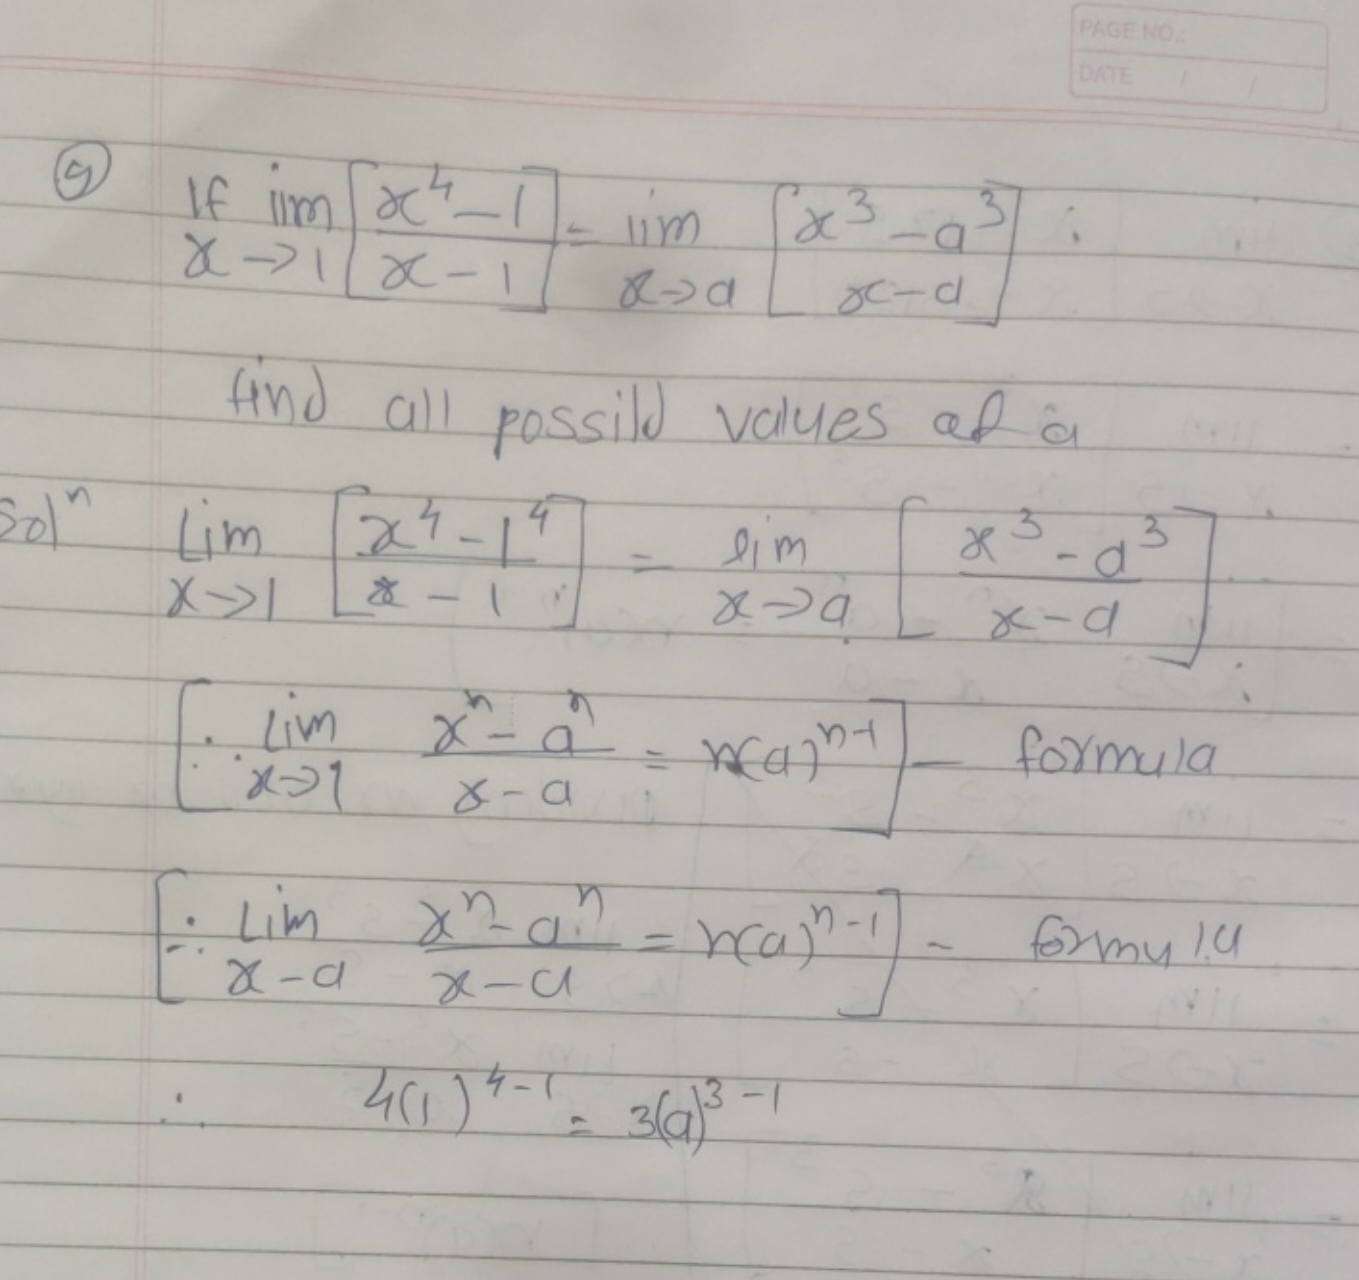 PAGE NO.:
DATE / /
9 If lim x→1 [x⁴-1 / x-1] = lim x→a [x³-a³ / x-a] :
find all possild values of a
Solⁿ Lim x→1 [x⁴-1⁴ / x-1] = lim x→a [x³-a³ / x-a]
[∵ Lim x→1 xⁿ-aⁿ / x-a = n(a)ⁿ⁻¹] - formula
[∵ Lim x-a xⁿ-aⁿ / x-a = n(a)ⁿ⁻¹] - formula
∴ 4(1)⁴⁻¹ = 3(a)³⁻¹